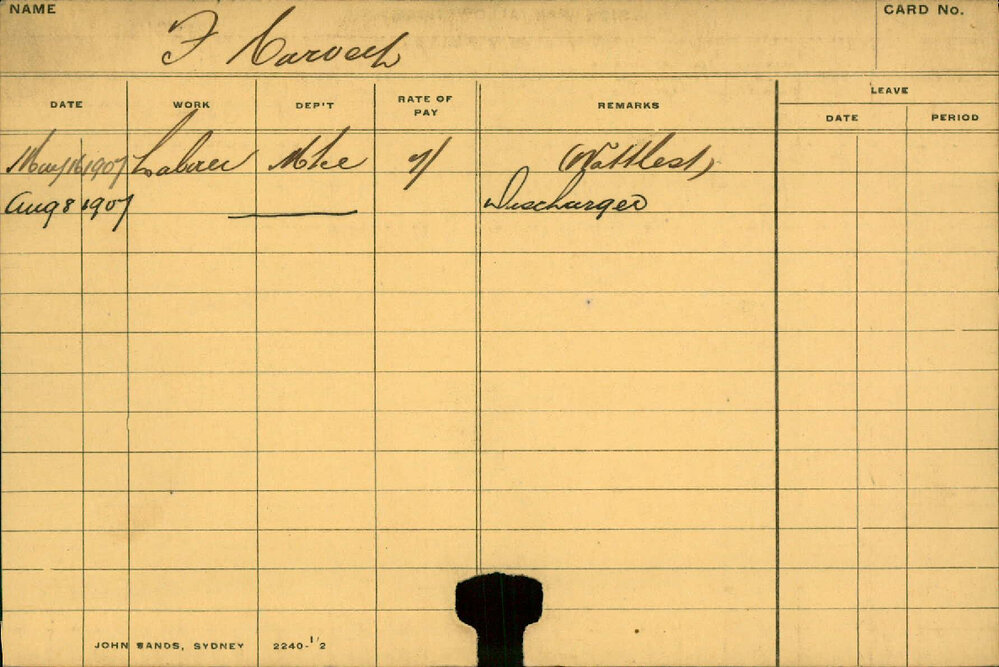 NAME F Carveth CARD No.
DATE WORK DEP'T RATE OF PAY REMARKS LEAVE
DATE PERIOD
May 16 1907 Labrer 7/ (Wattles)
Aug 8 1907 Discharged
JOHN SANDS, SYDNEY 2240-1/2